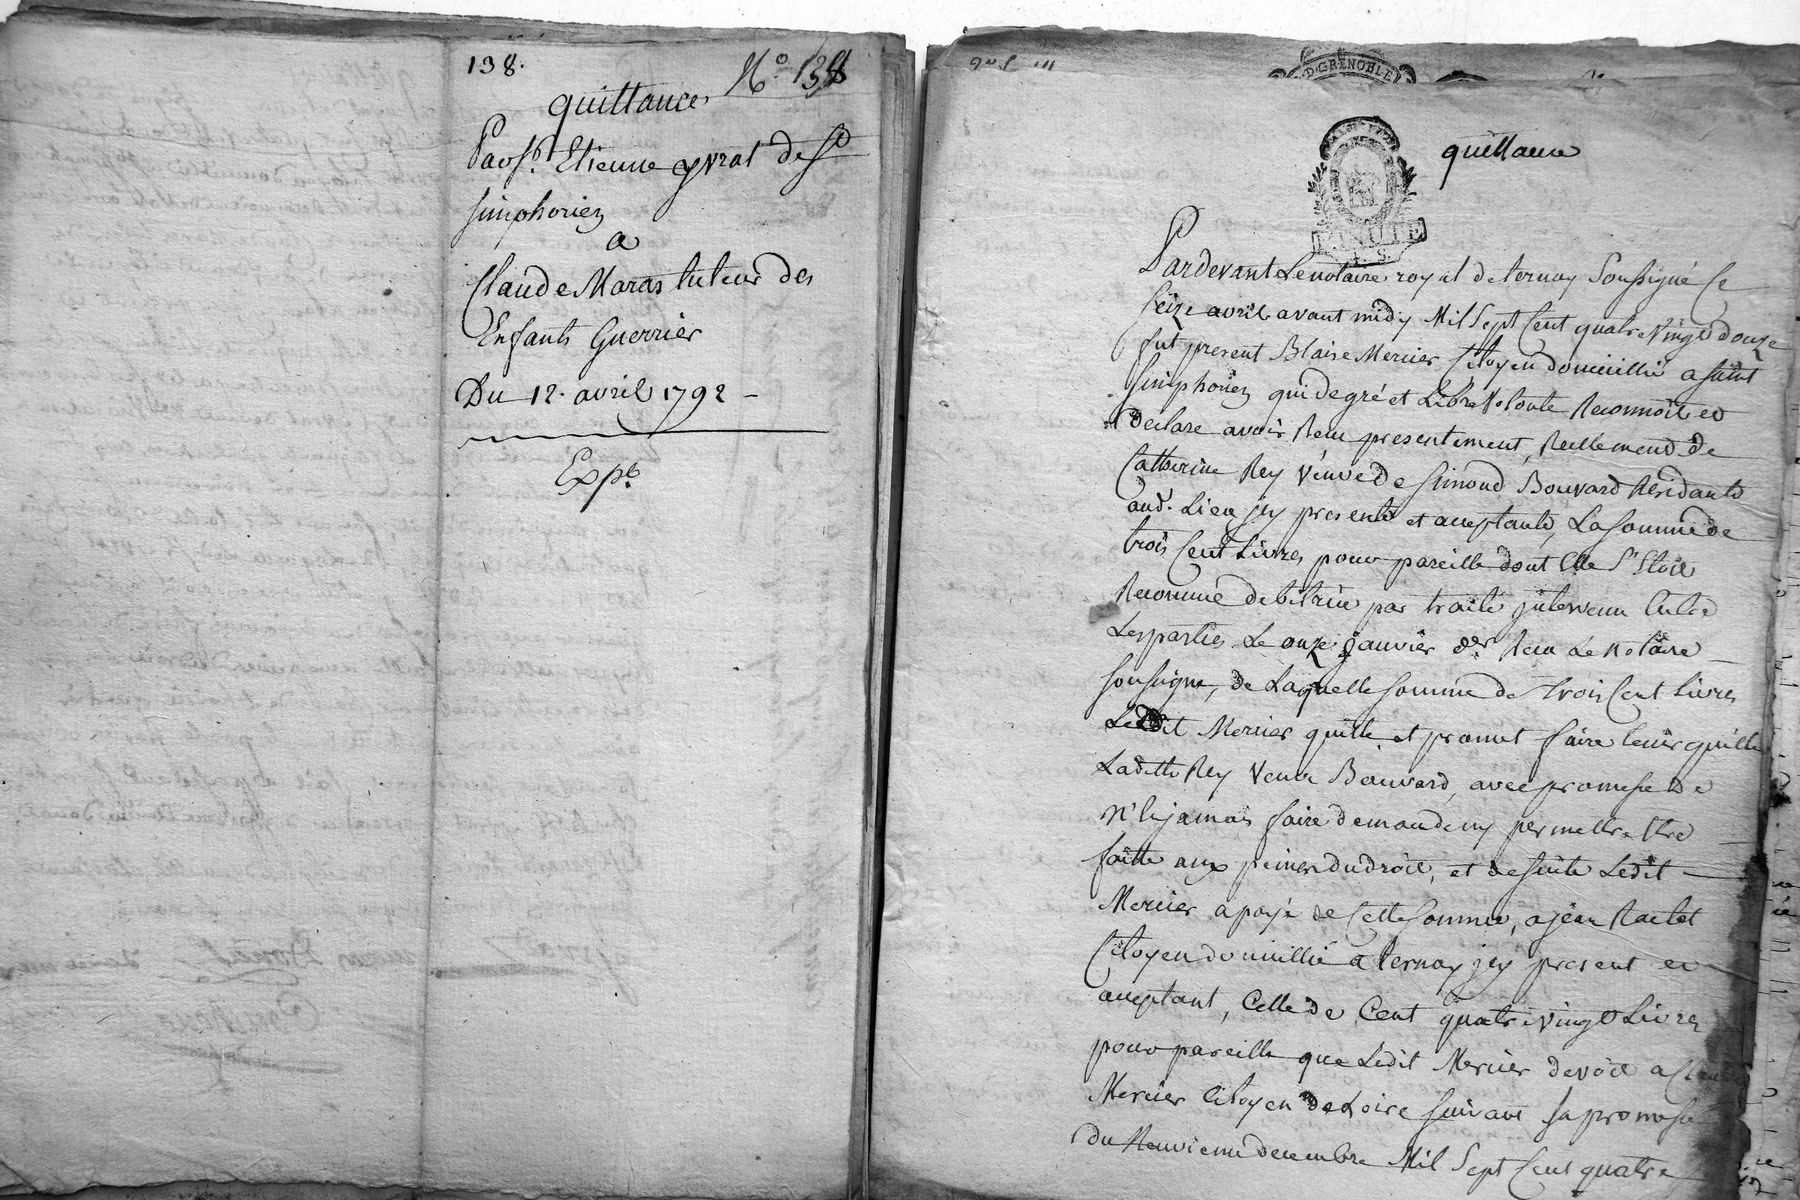 138.
N.º 138
quittance
Pasſ.ᵉ Etienne yvrat de St
simphorien
a
Claude Maras tuteur des
Enfants Guerrier
Du 12. avril 1792 -
Exp.
D. GRENOBLE
quittance
Pardevant Le notaire royal de ternay soussigné Ce
seize avril avant midy Mil Sept Cent quatre Vingt douze
fut present Blaise Mercier Citoyen domicillié a saint
simphorien qui de gré et Libre Volonte Reconnoit et
declare avoir Recu presentement, Reellement de
Catherine Rey Veuve de Simond Bouvard Residante
aud. Lieu jcy presente et acceptante, La Somme de
trois Cent Livres pour pareille dont Elle S'Etoit
Reconnue debitrice par traité jntervenu Entre
Les parties Le onze janvier der Recu Le notaire
soussigne, de Laquelle somme de trois Cent Livres
Ledit Mercier quitte et promet faire tenir quitte
Laditte Rey Veuve Bouvard, avec promesse de
n'En jamais faire demande ny permettre Etre
faitte aux peines du droit, et de suite Ledit
Mercier a payé de Cette Somme, a jean Raclet
Citoyen domicillié a ternay jcy present et
acceptant, Celle de Cent quatre Vingt Livres
pour pareille que Ledit Mercier devoit a Claude
Mercier Citoyen de Loire suivant sa promesse
du Neuvieme decembre Mil Sept Cent quatre